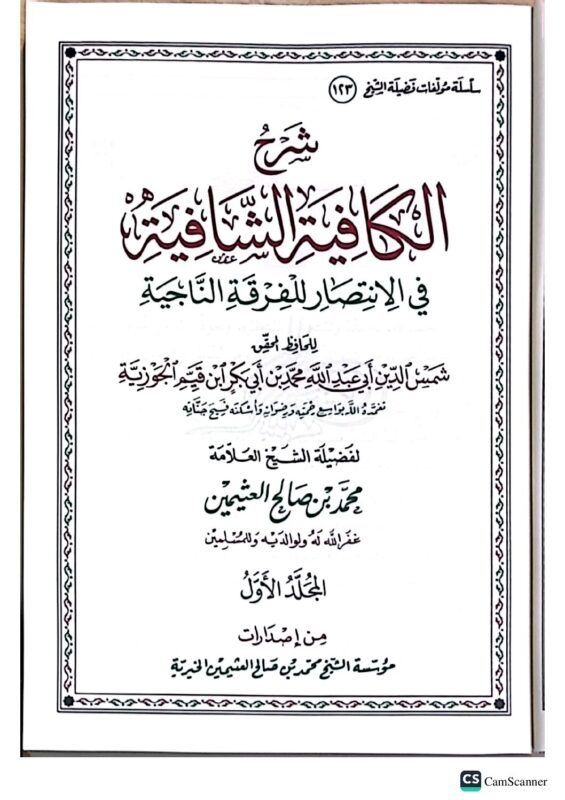 سلسلة مؤلفات فضيلة الشيخ (١٢٣)
شَرْحُ
الكَافِيَةِ الشَّافِيَةِ
فِي الِانْتِصَارِ لِلْفِرْقَةِ النَّاجِيَةِ
للحافظ المحقق
شَمْسِ الدِّينِ أَبِي عَبْدِ اللَّهِ مُحَمَّدِ بْنِ أَبِي بَكْرٍ ابْنِ قَيِّمِ الْجَوْزِيَّةِ
تغمده الله بواسع رحمته ورضوانه وأسكنه فسيح جناته
لفضيلة الشيخ العلامة
محمد بن صالح العثيمين
غفر الله له ولوالديه وللمسلمين
المجلد الأول
من إصدارات
مؤسسة الشيخ محمد بن صالح العثيمين الخيرية
CS CamScanner